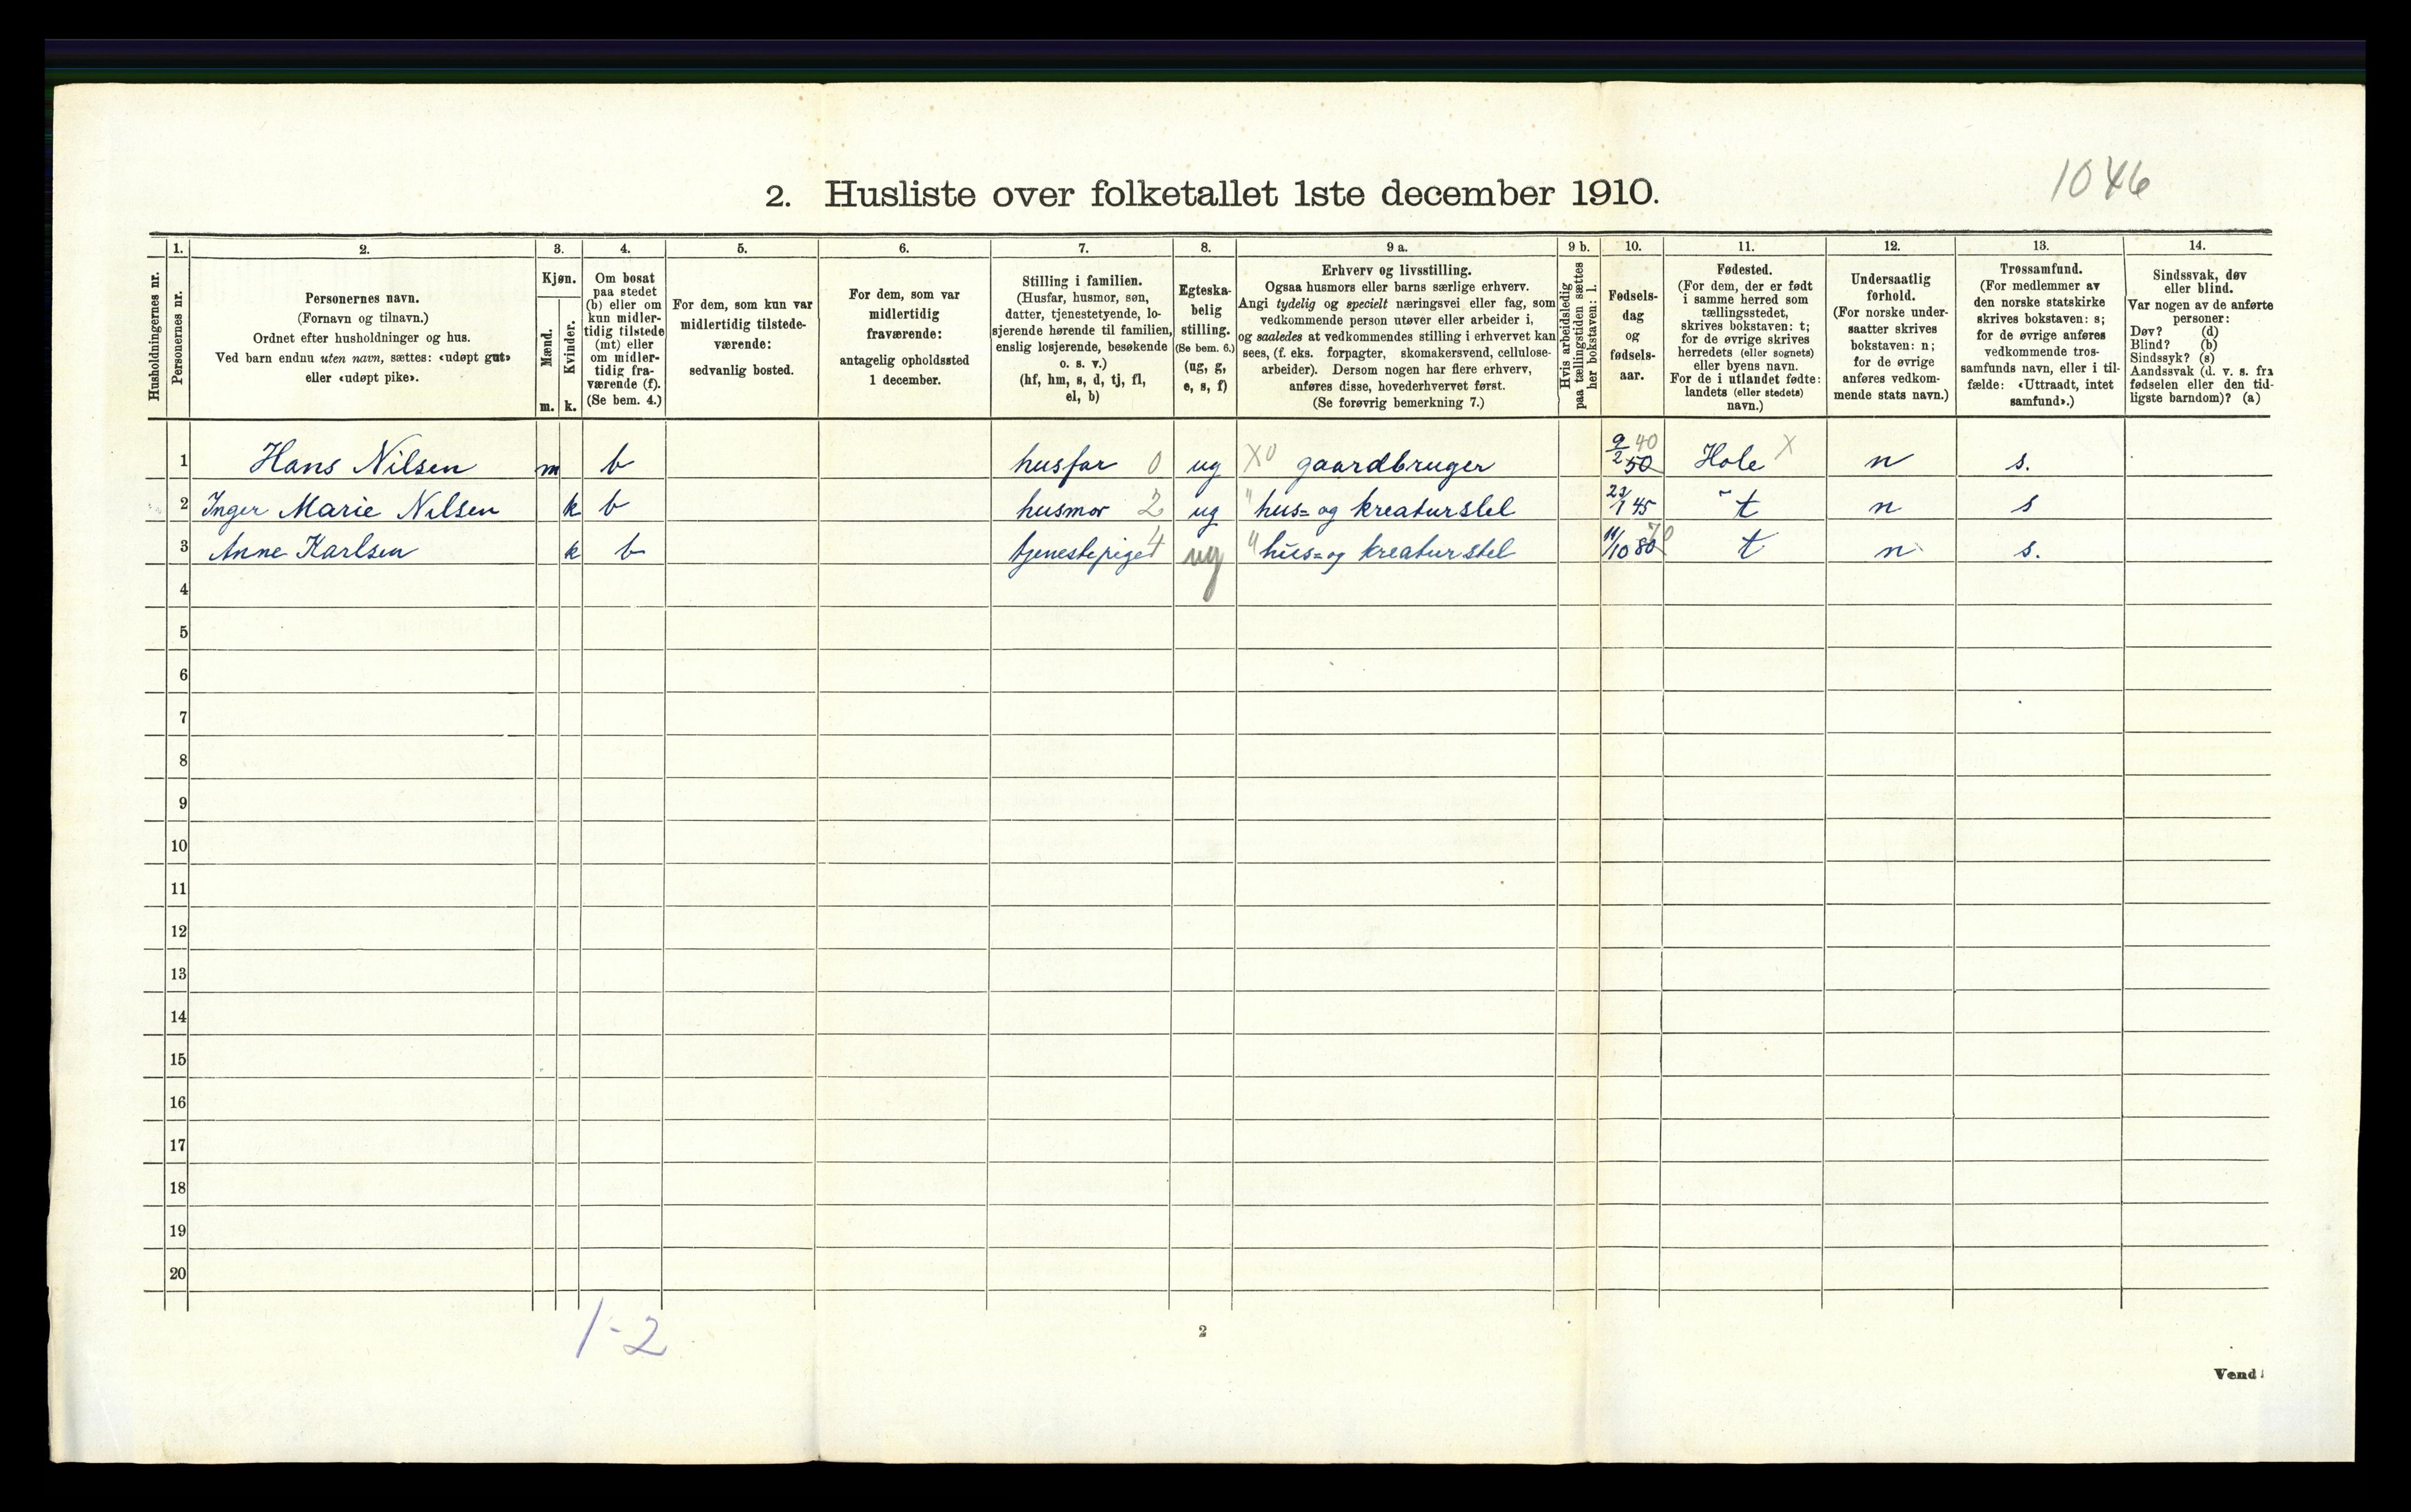 1046
2. Husliste over folketallet 1ste december 1910.
Husholdningernes nr.
1.
Personernes nr.
2.
Personernes navn.
(Fornavn og tilnavn.)
Ordnet efter husholdninger og hus.
Ved barn endnu uten navn, sættes: «udøpt gut»
eller «udøpt pike».
3.
Kjøn.
Mænd.
Kvinder.
m. k.
4.
Om bosat
paa stedet
(b) eller om
kun midler-
tidig tilstede
(mt) eller
om midler-
tidig fra-
værende (f).
(Se bem. 4.)
5.
For dem, som kun var
midlertidig tilstede-
værende:
sedvanlig bosted.
6.
For dem, som var
midlertidig
fraværende:
antagelig opholdssted
1 december.
7.
Stilling i familien.
(Husfar, husmor, søn,
datter, tjenestetyende, lo-
sjerende hørende til familien,
enslig losjerende, besøkende
o. s. v.)
(hf, hm, s, d, tj, fl,
el, b)
8.
Egteska-
belig
stilling.
(Se bem. 6.)
(ug, g,
e, s, f)
9 a.
Erhverv og livsstilling.
Ogsaa husmors eller barns særlige erhverv.
Angi tydelig og specielt næringsvei eller fag, som
vedkommende person utøver eller arbeider i,
og saaledes at vedkommendes stilling i erhvervet kan
sees, (f. eks. forpagter, skomakersvend, cellulose-
arbeider). Dersom nogen har flere erhverv,
anføres disse, hovederhvervet først.
(Se forøvrig bemerkning 7.)
9 b.
Hvis arbeidsledig
paa tællingstiden sættes
her bokstaven: l.
10.
Fødsels-
dag
og
fødsels-
aar.
11.
Fødested.
(For dem, der er født
i samme herred som
tællingsstedet,
skrives bokstaven: t;
for de øvrige skrives
herredets (eller sognets)
eller byens navn.
For de i utlandet fødte:
landets (eller stedets)
navn.)
12.
Undersaatlig
forhold.
(For norske under-
saatter skrives
bokstaven: n;
for de øvrige
anføres vedkom-
mende stats navn.)
13.
Trossamfund.
(For medlemmer av
den norske statskirke
skrives bokstaven: s;
for de øvrige anføres
vedkommende tros-
samfunds navn, eller i til-
fælde: «Uttraadt, intet
samfund».)
14.
Sindssvak, døv
eller blind.
Var nogen av de anførte
personer:
Døv? (d)
Blind? (b)
Sindssyk? (s)
Aandssvak (d. v. s. fra
fødselen eller den tid-
ligste barndom)? (a)
1 Hans Nilsen m b husfar 0 ug X0 gaardbruger 9/2 50 40 Hole X n s.
2 Inger Marie Nilsen k b husmor 2 ug " hus- og kreaturstel 23/1 45 t n s
3 Anne Karlsen k b tjenestepige 4 ug " hus- og kreaturstel 11/10 80 70 t n s.
4
5
6
7
8
9
10
11
12
13
14
15
16
17
18
19
20
1-2
2
Vend!